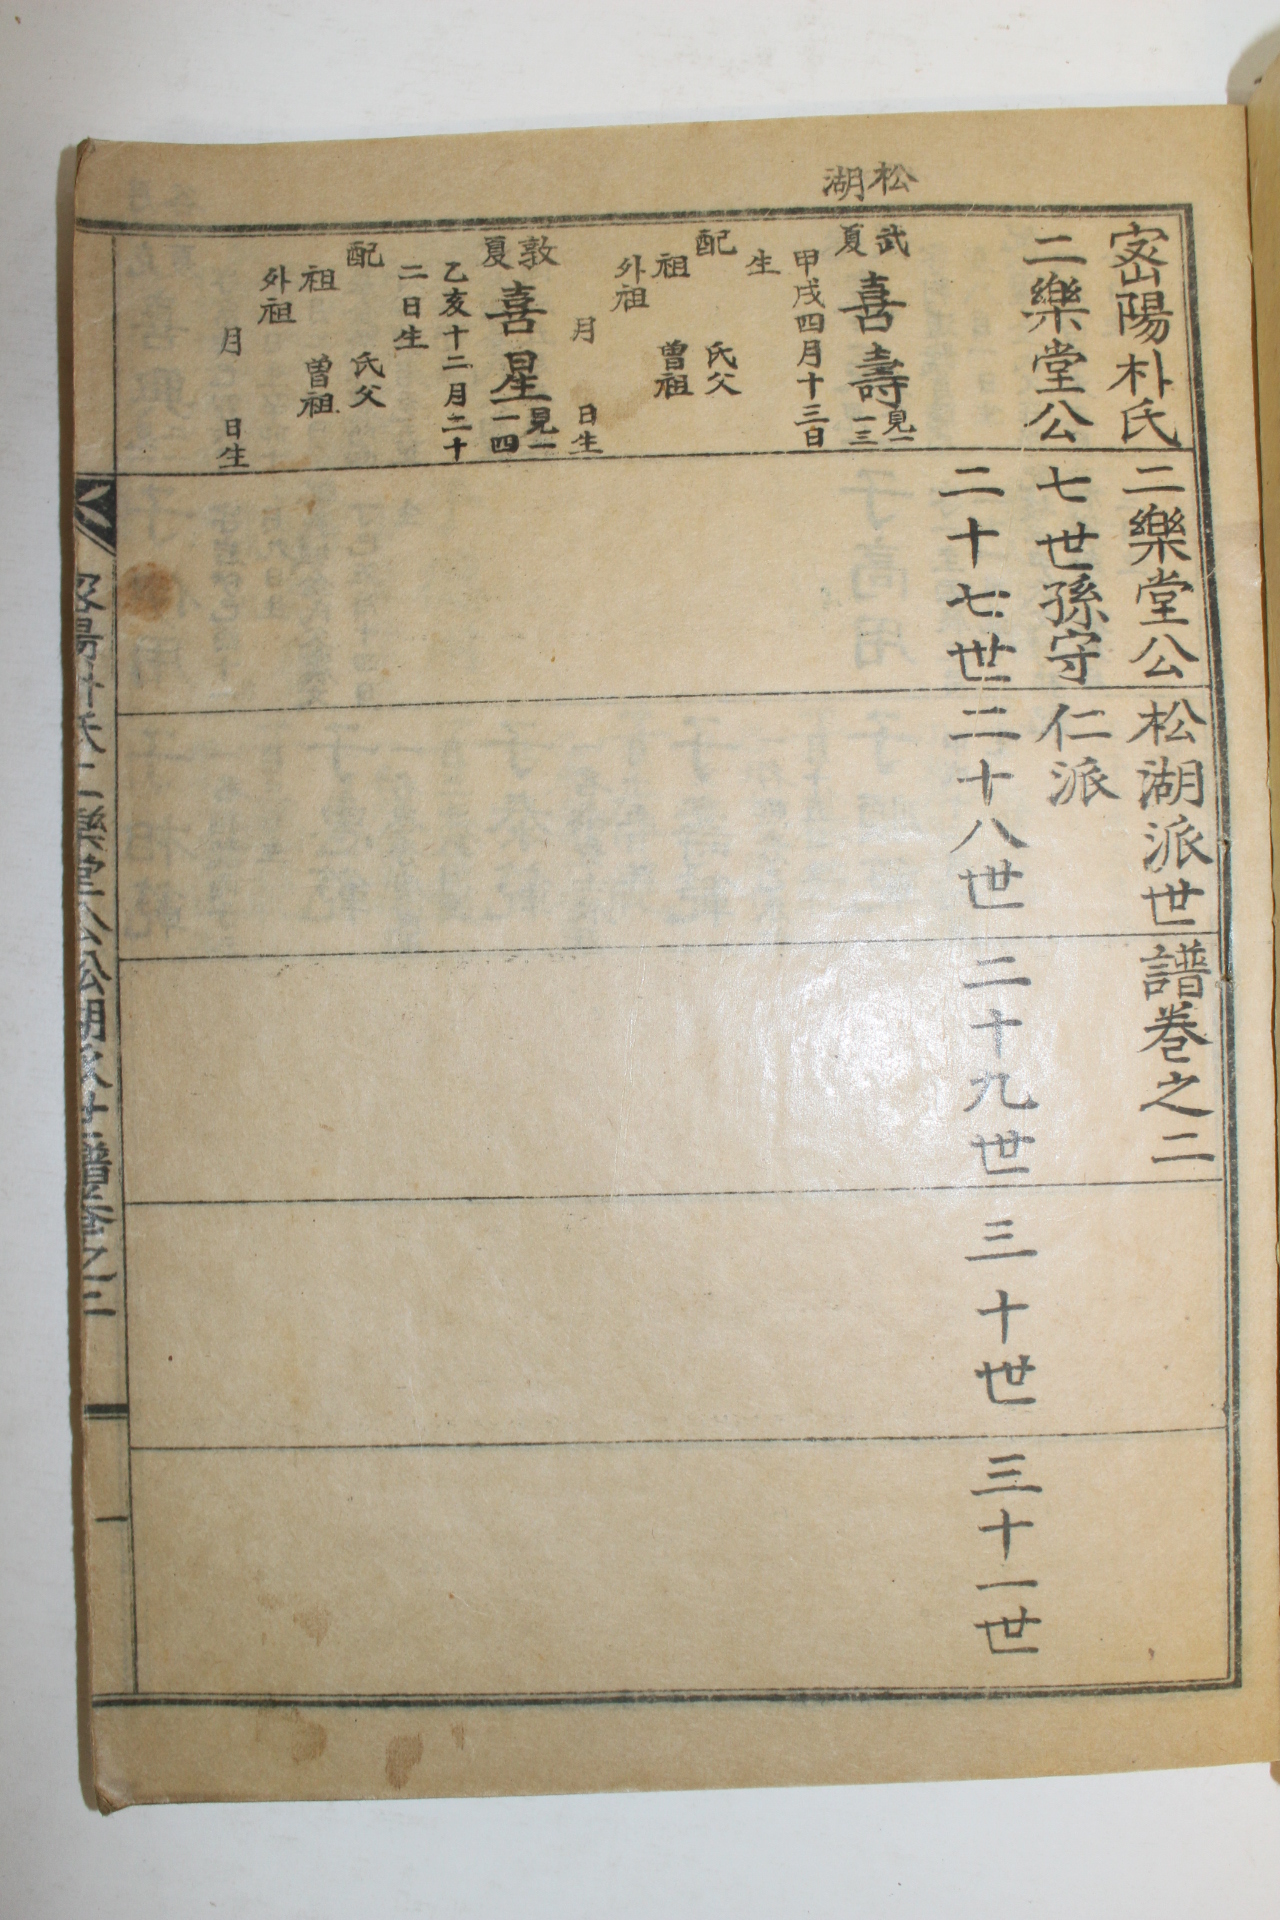 松湖
密陽朴氏二樂堂公松湖派世譜卷之二
二樂堂公七世孫守仁派
二十七世
二十八世
二十九世
三十世
三十一世
武夏
喜壽
見一
一三
甲戌四月十三日
生
配
氏父
祖
曾祖
外祖
月
日生
敦夏
喜星
見一
一四
乙亥十二月二十
二日生
配
氏父
祖
曾祖
外祖
月
日生
密陽朴氏二樂堂公松湖派世譜卷之二
一